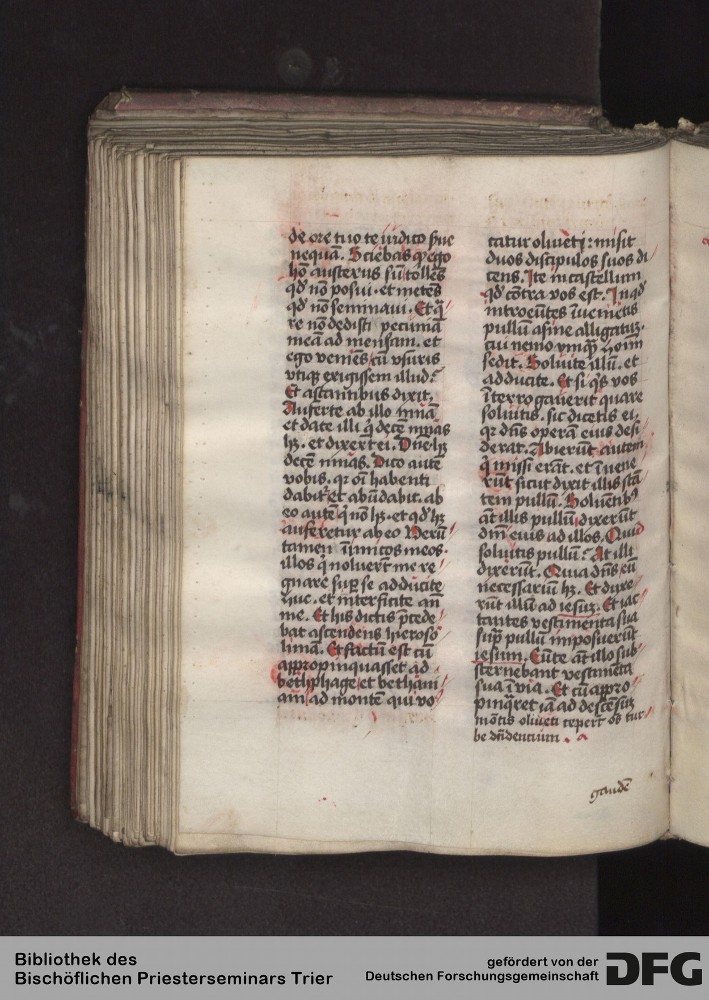 de ore tuo te iudico sue
nequā. Sciebas qꝫ ego
hō austerus sū tollēs
qd̕ nō posui. et metēs
qd̕ nō seminaui. Et q̄
re nō dedisti pecuniā
meā ad mensam. et
ego veniēs cū vsuris
vtiqꝫ exigissem illud?
Et astantibus dixit.
Auferte ab illo mnā
et date illi q̇ decē mnas
hꝫ. et dixert ei. Dn̄e hꝫ
decē mnas. Dico autē
vobis. qr om̄ habenti
dabit̕ et abūdabit. ab
eo autē q̇ nō hꝫ. et qd̕ hꝫ
auferetur ab eo Verū
tamen īimicos meos.
illos q̇ noluerūt me re
gnare suꝑ se adducite
huc. et interficite an̄
me. Et his dictis p̄cede
bat ascendens hieroso
limā. Et factū est cū
appropinquasset ad
bethphage et bethani
am ad montē qui vo
catur oliueti: misit
duos discipulos suos di
cens. Ite in castellum
qd̕ cōtra vos est. In qd̕
introeūtes īuenietis
pullū asine alligatūꝫ.
cui nemo vmqꝫ hoim
sedit. Soluite illū. et
adducite. Et si q̇s vos
īterrogauerit quare
soluitis. sic dicetis ei.
qr dn̄s operā eius desi
derat. Abierūt autem
q̇ missi erāt. et īuene
rūt sicut dixit illis stā
tem pullū. Soluentibꝰ
āt illis pullū dixerūt
dn̄i eius ad illos. Quid
soluitis pullū? At illi
dixerūt. Quia dn̄s eū
necessariū hꝫ. Et duxe
rūt illū ad iesuꝫ. Et iac
tantes vestimenta sua
supͣ pullū imposuerūt
iesum. Eūte āt illo sub
sternebant vestimēta
sua ī via. Et cū appro
pinq̄ret iā ad descēsūꝫ
mōtis oliueti cepert̄ oēs tur
be
gaudē
Bibliothek des
Bischöflichen Priesterseminars Trier
gefördert von der
Deutschen Forschungsgemeinschaft
DFG